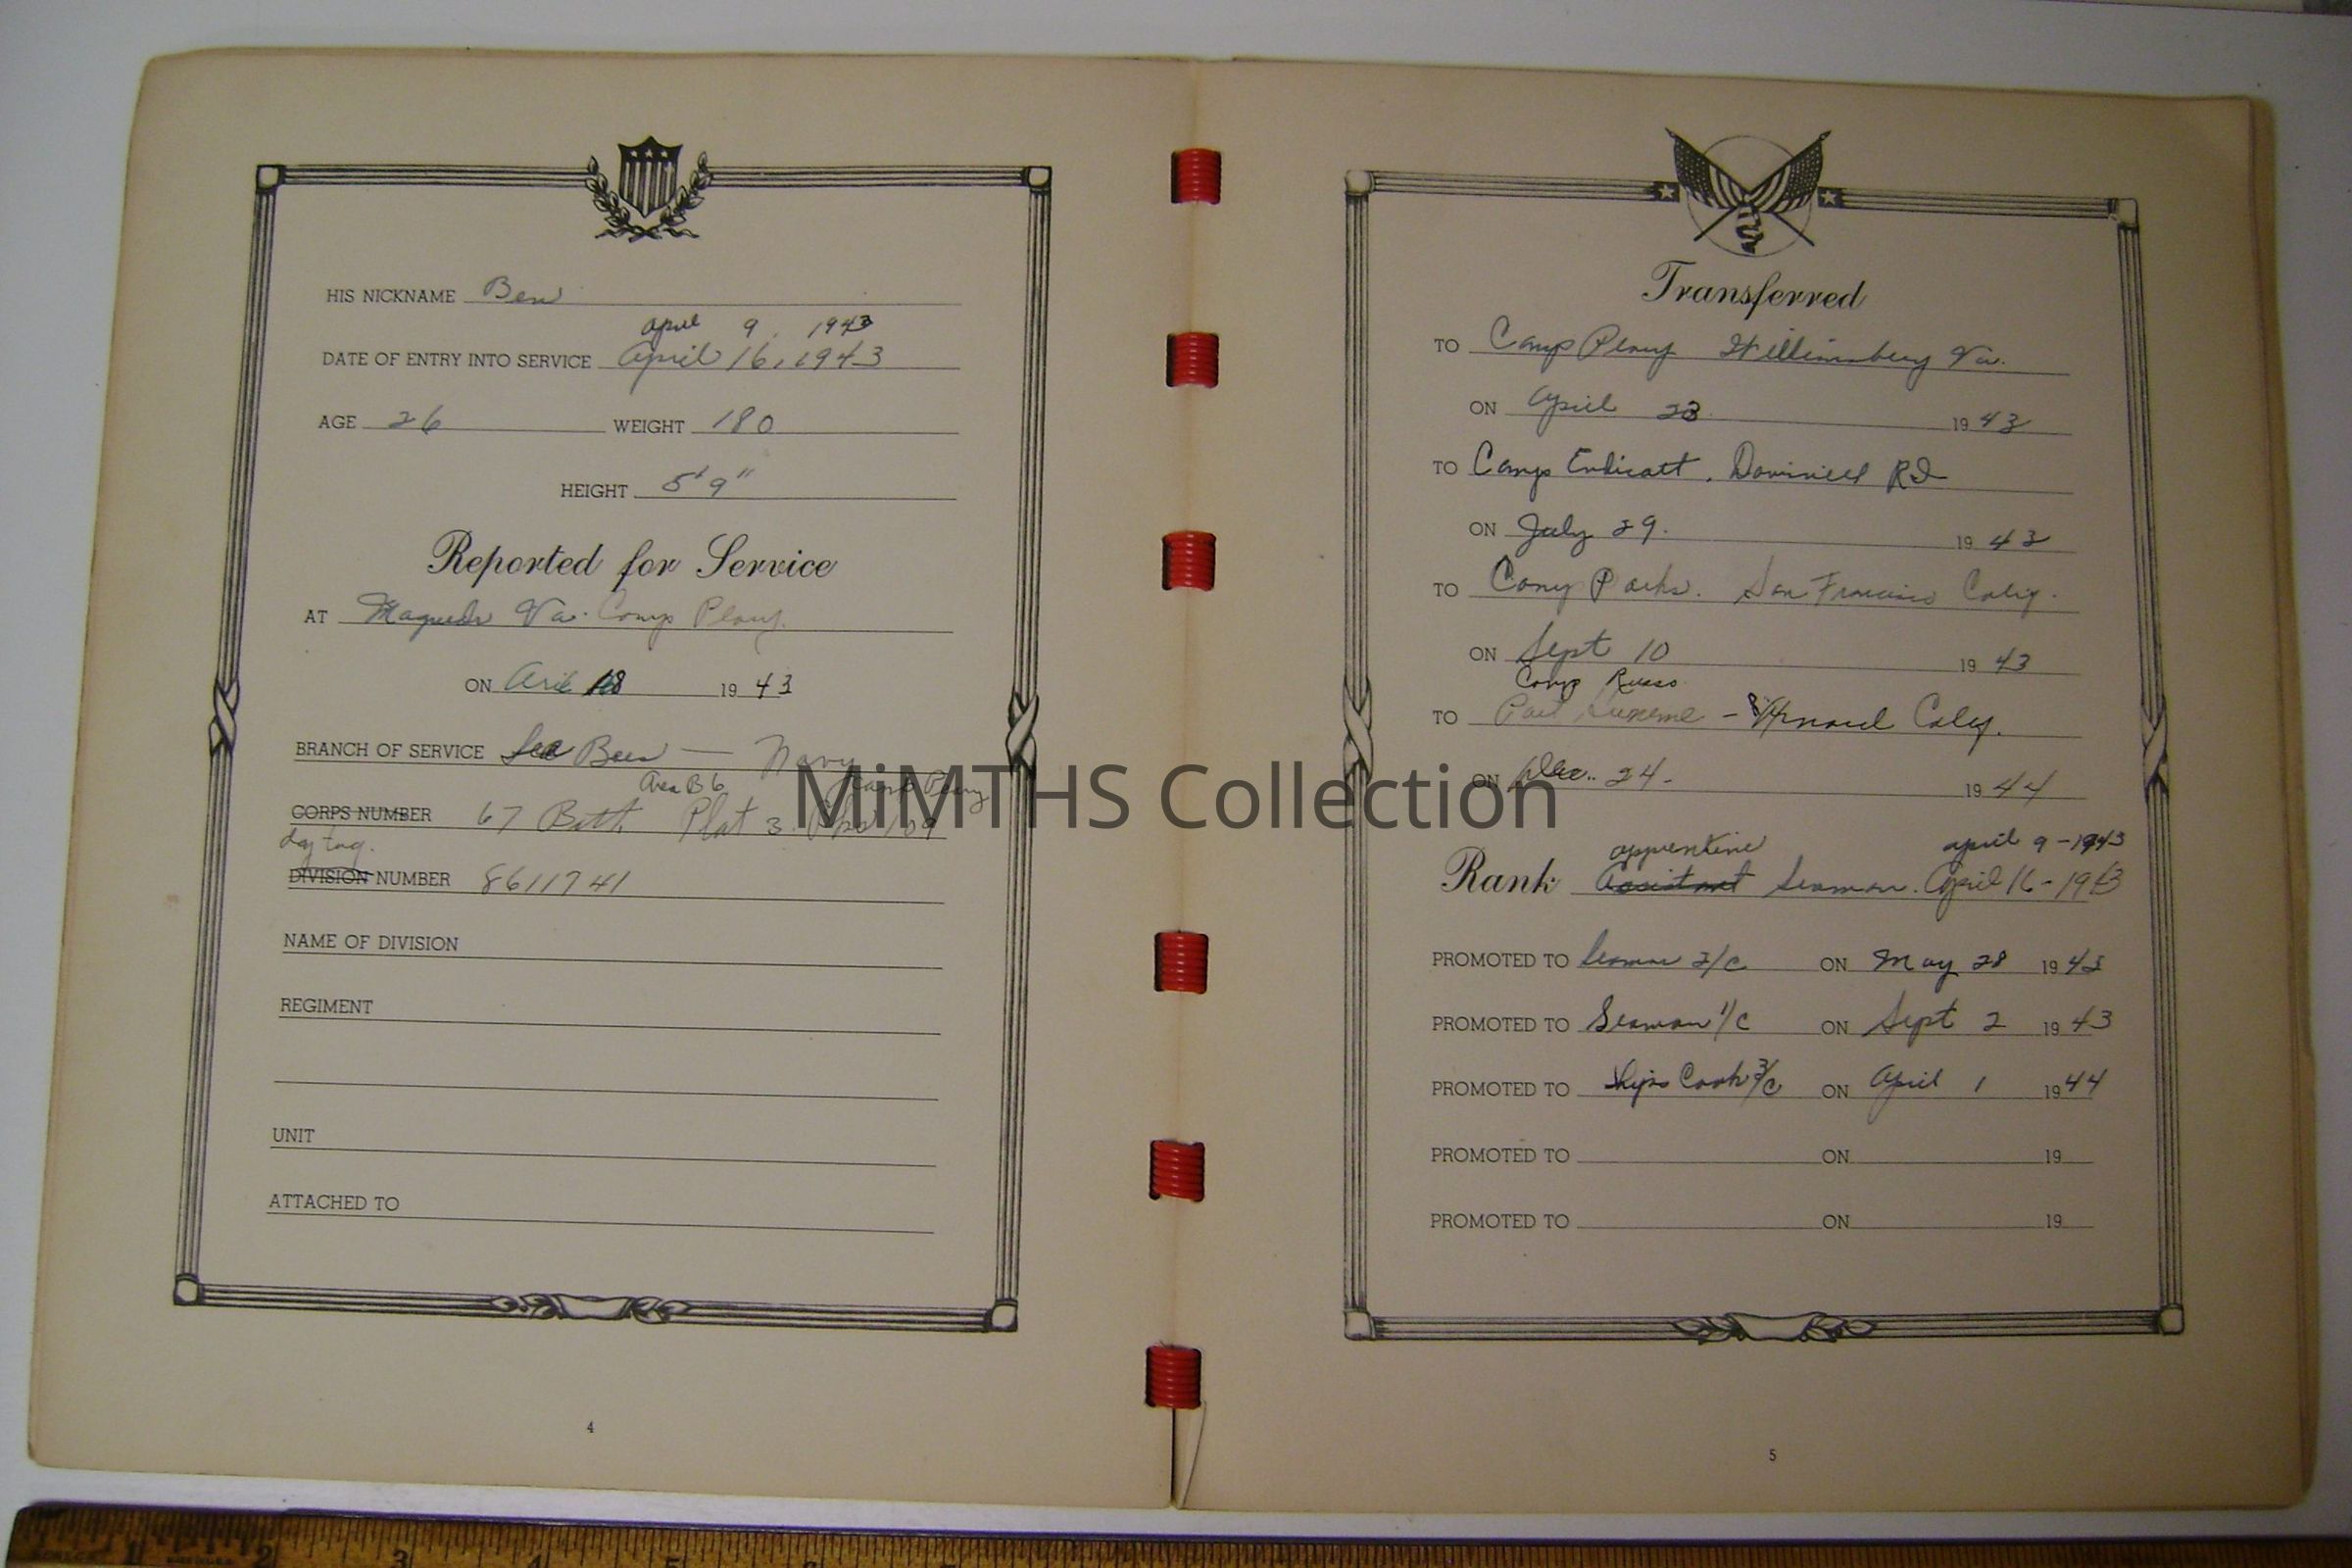 HIS NICKNAME Ben
april 9, 1943
DATE OF ENTRY INTO SERVICE April 16, 1943
AGE 26 WEIGHT 180
HEIGHT 5'9"
Reported for Service
AT Va. Camp Peary
ON 18 1943
BRANCH OF SERVICE Sea Bees — Navy
Area B6 Camp Peary
CORPS NUMBER 67 Batt. Plat 3 109
dog tag.
DIVISION NUMBER 8611741
NAME OF DIVISION
REGIMENT
UNIT
ATTACHED TO
4
Transferred
TO Camp Peary Williamsburg Va.
ON April 23 1943
TO Camp Endicott, RI
ON July 29. 1943
TO Camp Parks. San Francisco Calif.
ON Sept 10 1943
Camp
TO Calif.
ON Dec. 24. 1944
april 9-1943
Rank Assistant Seaman. April 16-1943
PROMOTED TO Seaman 2/c ON May 28 1943
PROMOTED TO Seaman 1/c ON Sept 2 1943
PROMOTED TO Ships Cook 3/c ON April 1 1944
PROMOTED TO ON 19
PROMOTED TO ON 19
5
MiMTHS Collection
1 2 3 4 5 6